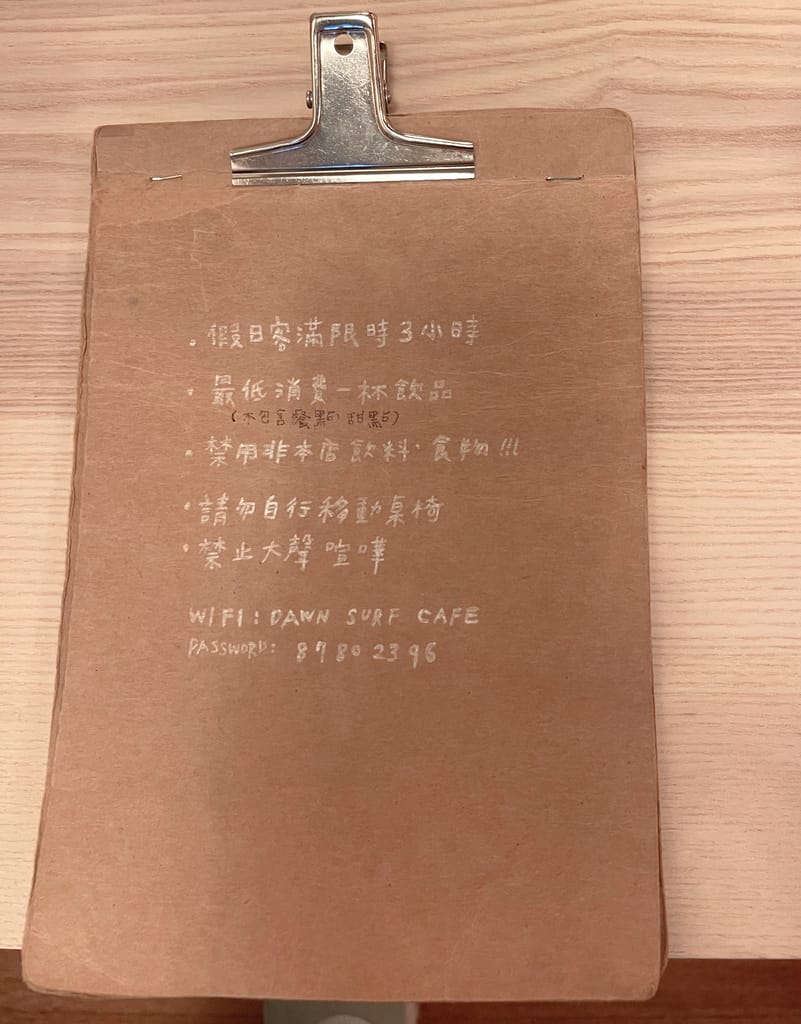 。假日客滿限時3小時
・最低消費一杯飲品
(不包含餐點、甜點)
・禁用非本店飲料、食物!!!
・請勿自行移動桌椅
・禁止大聲喧嘩
WIFI:DAWN SURF CAFE
PASSWORD: 87802396